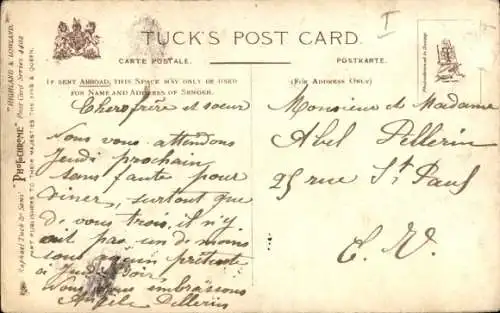 TUCK'S POST CARD.
CARTE POSTALE.
POSTKARTE.
IF SENT ABROAD, THIS SPACE MAY ONLY BE USED
FOR NAME AND ADDRESS OF SENDER.
(FOR ADDRESS ONLY)
"HIGHLAND & LOWLAND."
Post Card Series 4402
Raphael Tuck & Sons' "PHOTOCHROME"
ART PUBLISHERS TO THEIR MAJESTIES THE KING & QUEEN.
Chers frère et soeur
Nous vous attendons
Jeudi prochain
sans faute pour
diner, surtout que
de vous trois, il n'y
ait pas un de moins
sous aucun prétexte
à Jeudi soir
Nous vous embrassons
Angèle Pellerin
Monsieur et Madame
Abel Pellerin
25 rue St Paul
E. V.